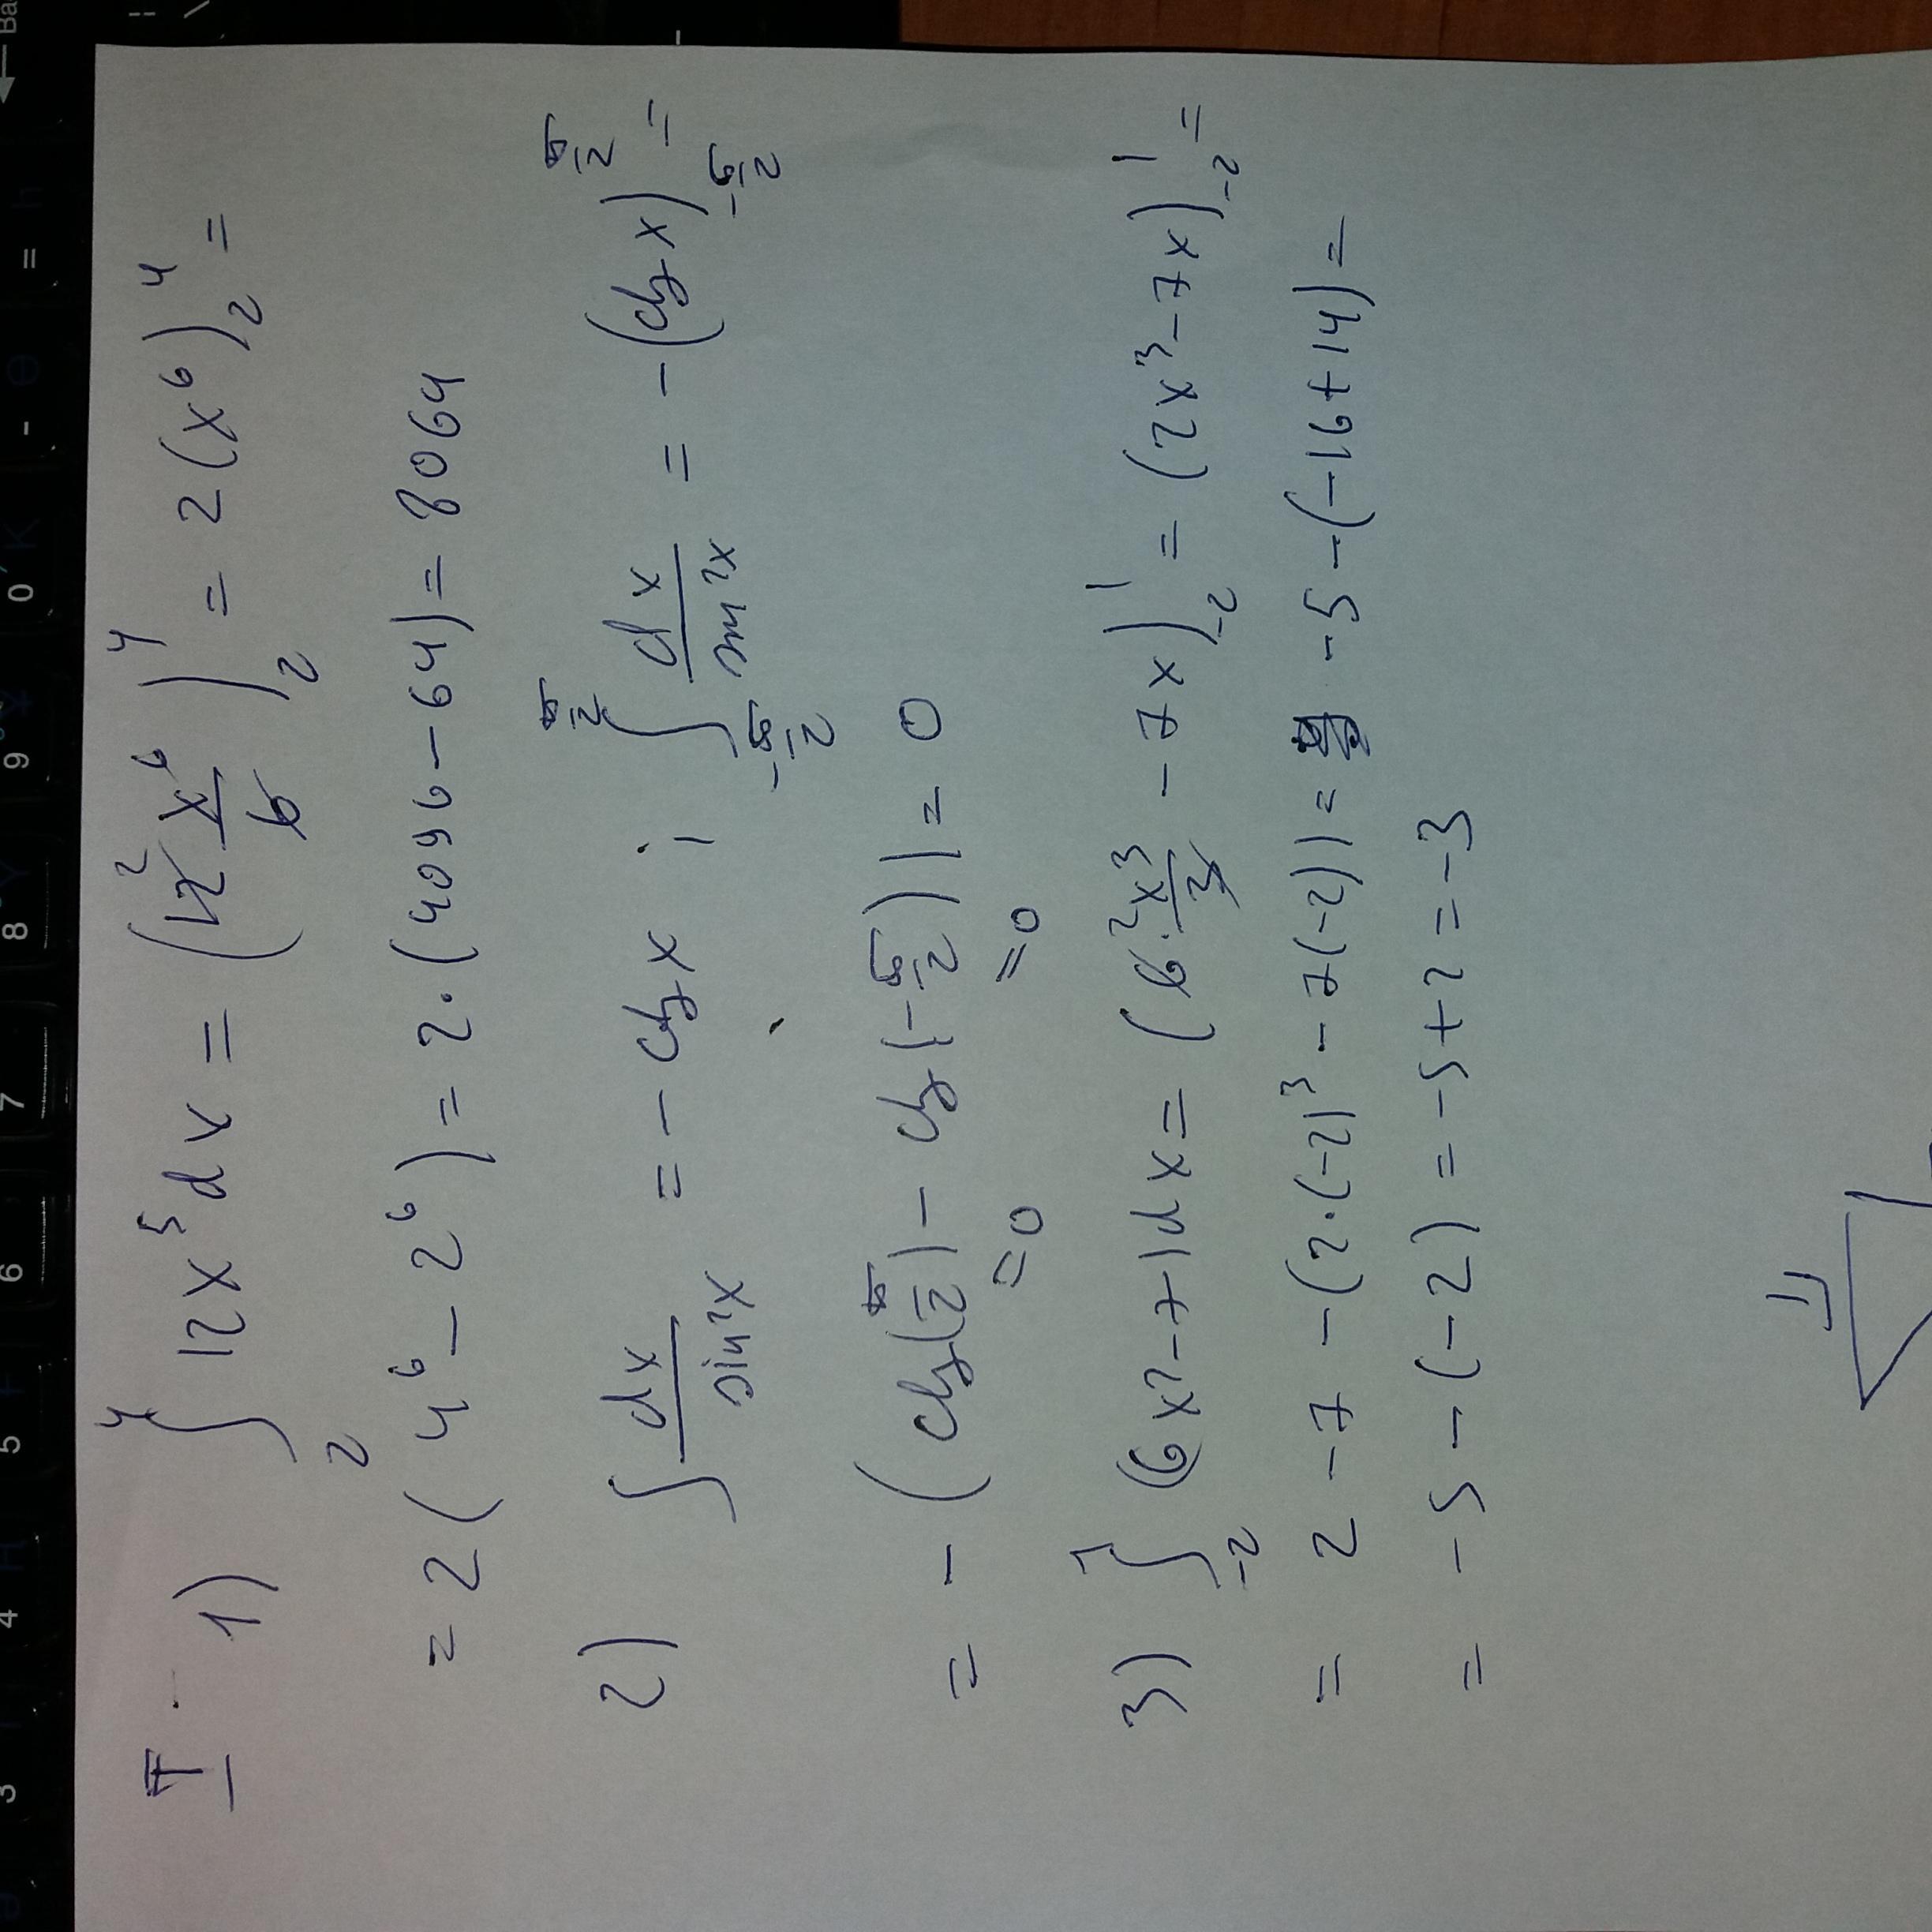 I 1) ∫₂⁴ 12x⁵dx = (12² x⁶/6)₂⁴ = 2(x⁶)₂⁴ =
= 2(4⁶ - 2⁶) = 2·(4096 - 64) = 8064
2) ∫ dx/sin²x = - ctg x ; ∫_{-π/2}^{π/2} dx/sin²x = -(ctg x)_{-π/2}^{π/2} =
= - (ctg(π/2) - ctg(-π/2)) = 0
=0 =0
3) ∫₋₂¹ (6x²-7)dx = (6·² x³/3 - 7x)₋₂¹ = (2x³ - 7x)₋₂¹ =
= 2 - 7 - (2·(-2)³ - 7(-2)) = -5 - (-16+14) =
= -5 - (-2) = -5+2 = -3
II